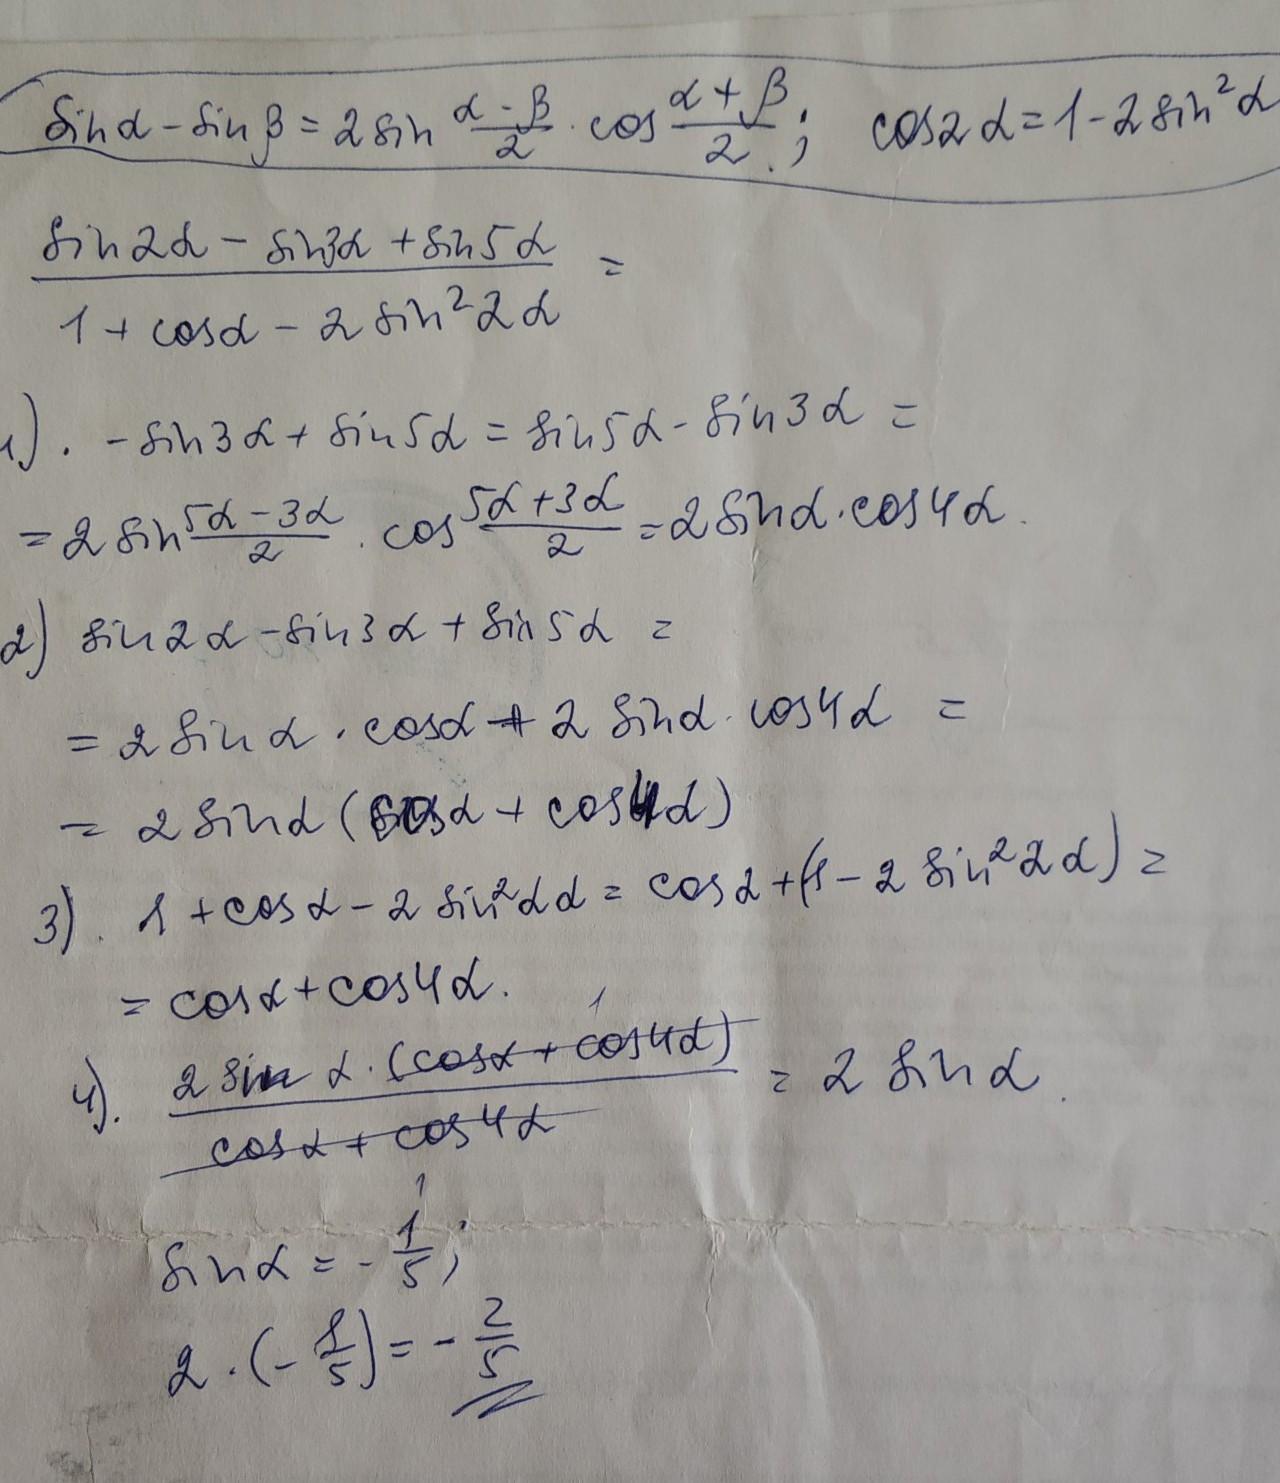 sinα - sinβ = 2 sin (α - β)/2 · cos (α + β)/2; cos2α = 1 - 2 sin²α
(sin2α - sin3α + sin5α)/(1 + cosα - 2 sin²2α) =
1). - sin3α + sin5α = sin5α - sin3α =
= 2 sin (5α - 3α)/2 · cos (5α + 3α)/2 = 2 sinα · cos4α.
2) sin2α - sin3α + sin5α =
= 2 sinα · cosα + 2 sinα · cos4α =
= 2 sinα (cosα + cos4α)
3). 1 + cosα - 2 sin²2α = cosα + (1 - 2 sin²2α) =
= cosα + cos4α.
4). (2 sinα · (cosα + cos4α) 1)/(cosα + cos4α 1) = 2 sinα.
sinα = - 1/5;
2 · (- 1/5) = - 2/5